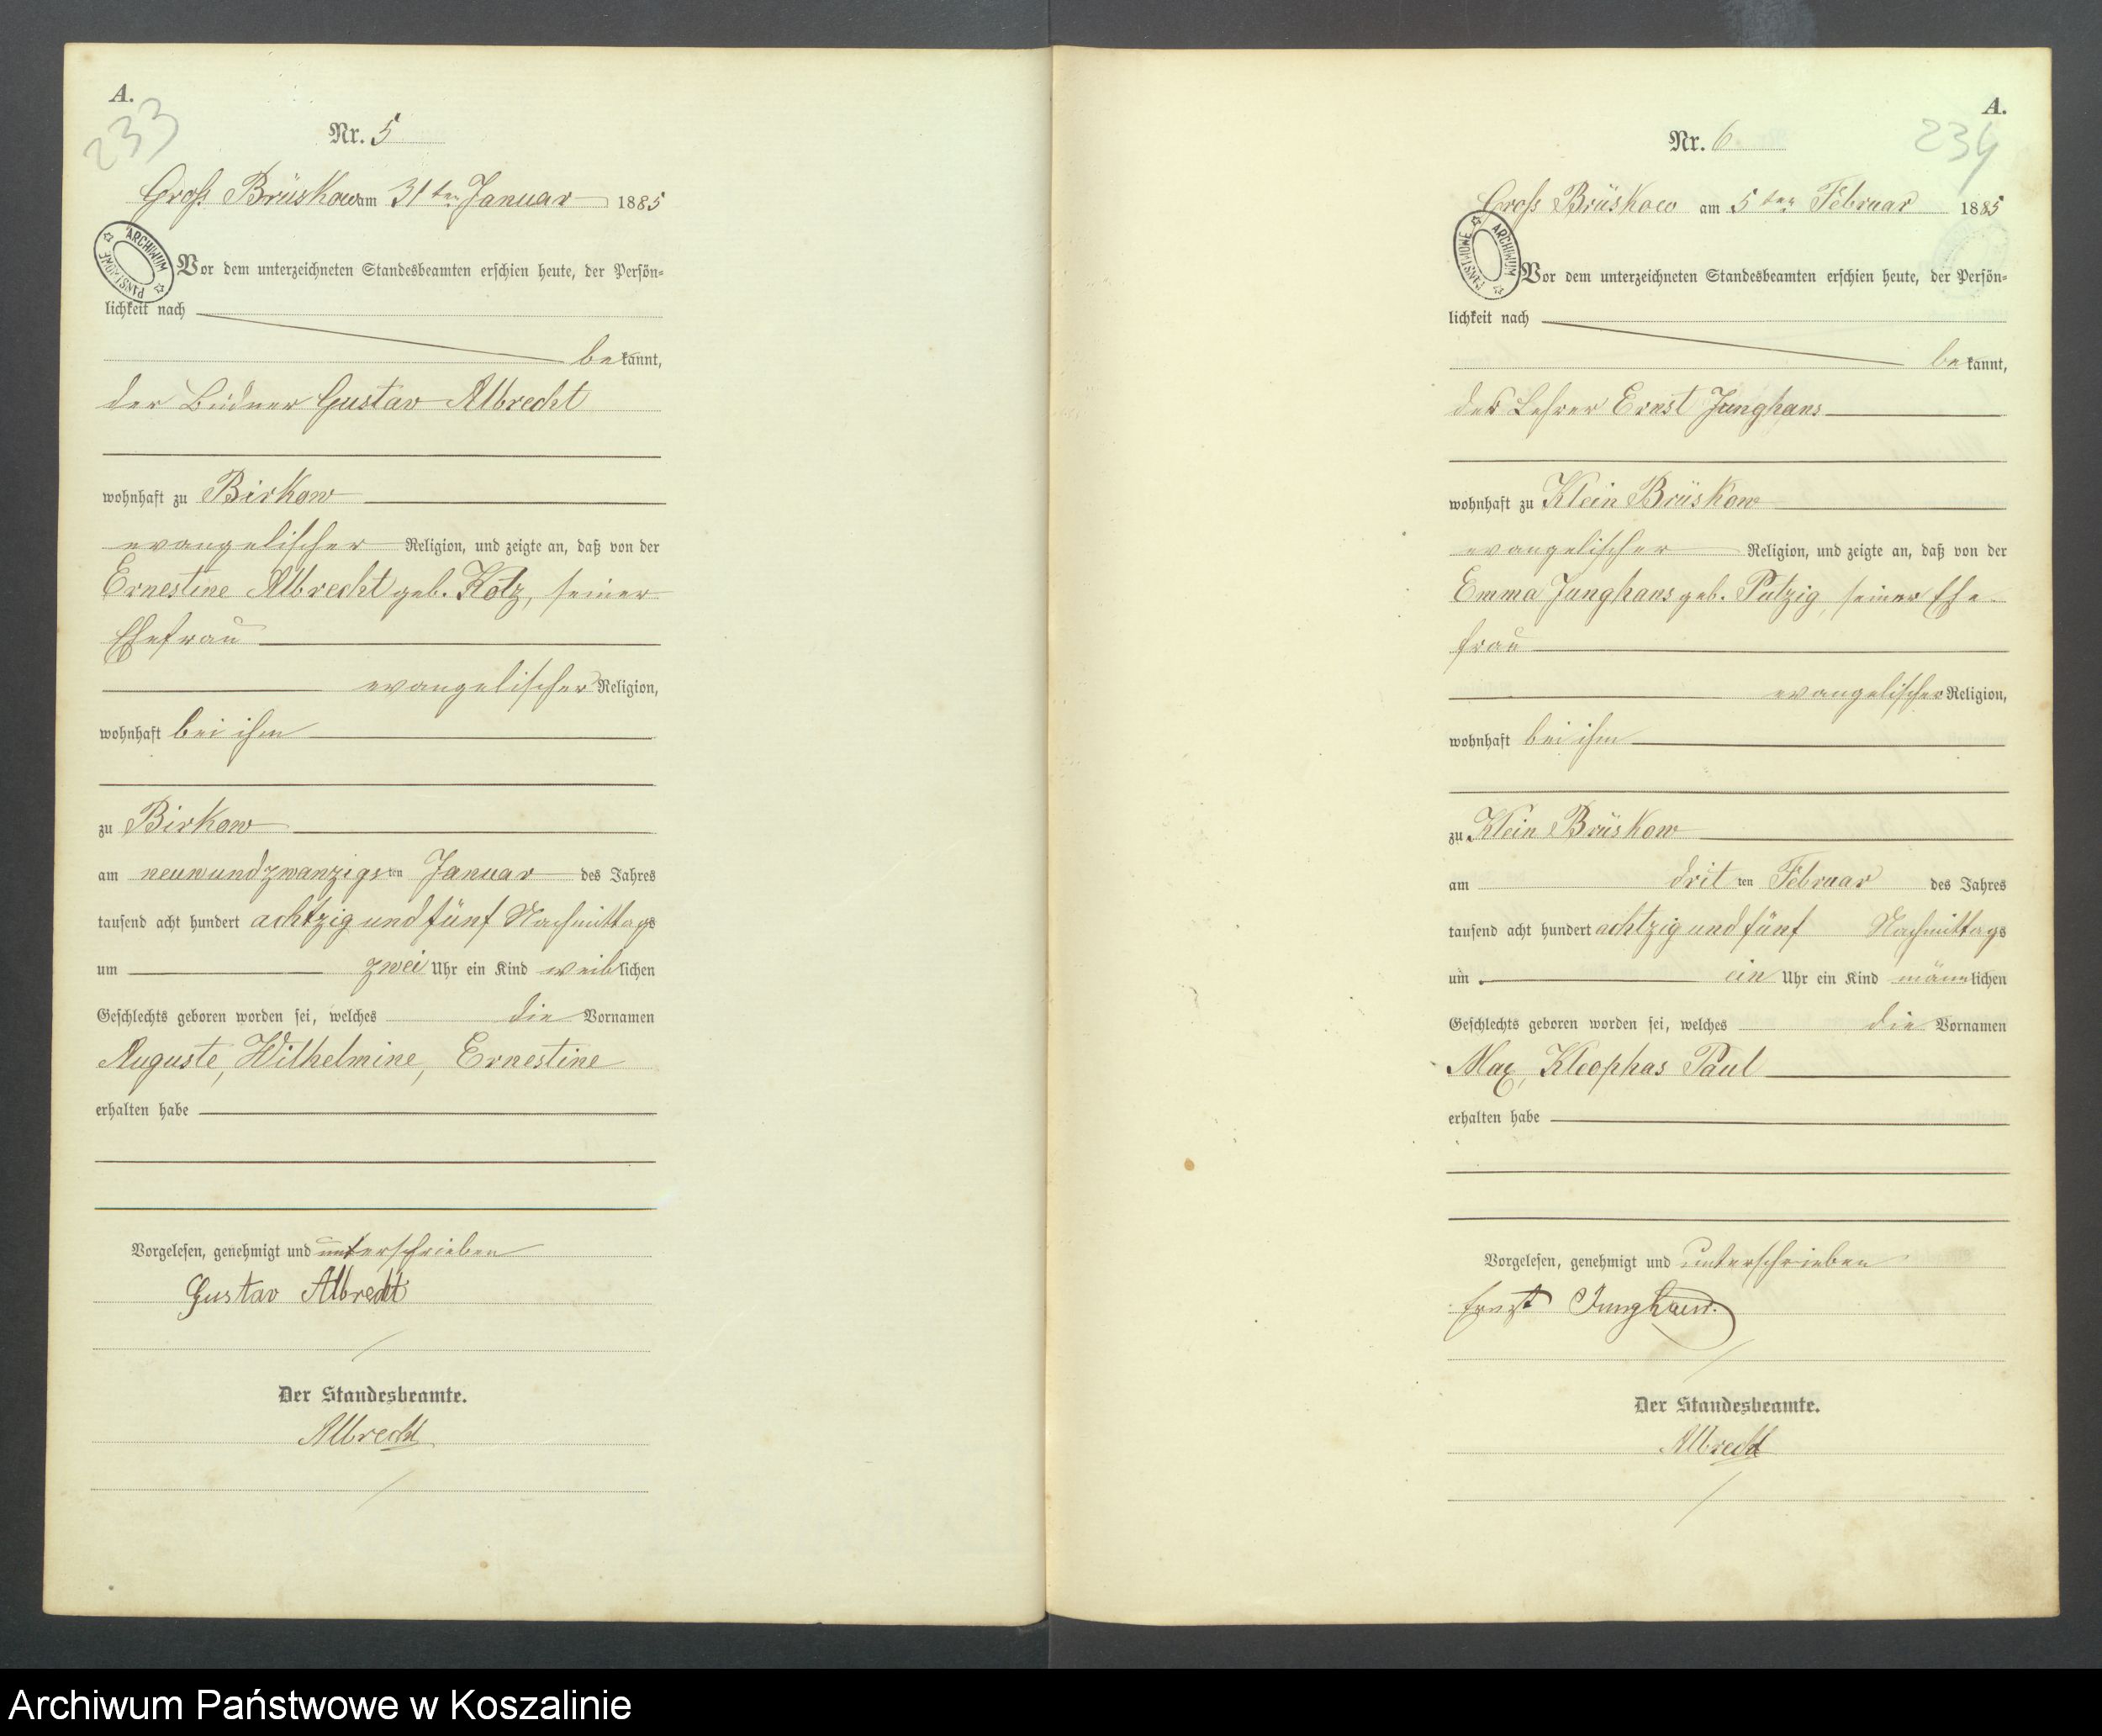 A.
233
Nr. 5
Groß Brüskow am 31ten Januar 1885
ARCHIWUM PAŃSTWOWE
Vor dem unterzeichneten Standesbeamten erschien heute, der Persön-
lichkeit nach
bekannt,
der Büdner Gustav Albrecht
wohnhaft zu Birkow
evangelischer Religion, und zeigte an, daß von der
Ernestine Albrecht geb. Kotz, seiner
Ehefrau
evangelischer Religion,
wohnhaft bei ihm
zu Birkow
am neunundzwanzigsten Januar des Jahres
tausend acht hundert achtzig und fünf Nachmittags
um zwei Uhr ein Kind weiblichen
Geschlechts geboren worden sei, welches die Vornamen
Auguste, Wilhelmine, Ernestine
erhalten habe
Vorgelesen, genehmigt und unterschrieben
Gustav Albrecht
Der Standesbeamte.
Albrecht
A.
234
Nr. 6
Groß Brüskow am 5ten Februar 1885
ARCHIWUM PAŃSTWOWE
Vor dem unterzeichneten Standesbeamten erschien heute, der Persön-
lichkeit nach
bekannt,
der Lehrer Ernst Junghans
wohnhaft zu Klein Brüskow
evangelischer Religion, und zeigte an, daß von der
Emma Junghans geb. Putzig, seiner Ehe-
frau
evangelischer Religion,
wohnhaft bei ihm
zu Klein Brüskow
am dritten Februar des Jahres
tausend acht hundert achtzig und fünf Nachmittags
um ein Uhr ein Kind männlichen
Geschlechts geboren worden sei, welches die Vornamen
Max, Kleophas Paul
erhalten habe
Vorgelesen, genehmigt und unterschrieben
Ernst Junghans.
Der Standesbeamte.
Albrecht
Archiwum Państwowe w Koszalinie